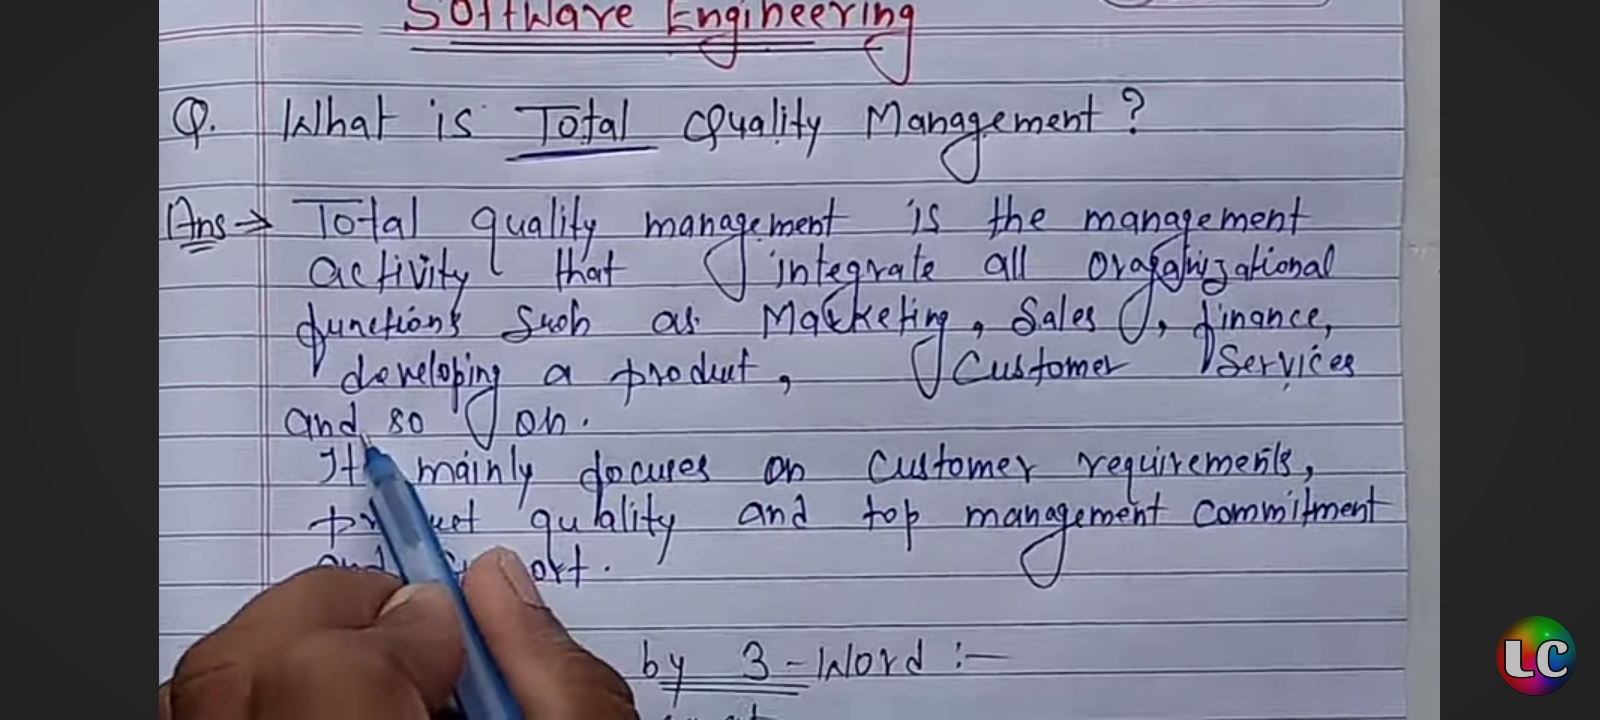 Software Engineering
Q. What is Total Quality Management?
Ans → Total quality management is the management
activity that integrate all oraganizational
functions Such as Marketing, Sales, finance,
developing a product, Customer Services
and so on.
It mainly focuses on customer requirements,
quality and top management commitment
by 3-Word :-
LC